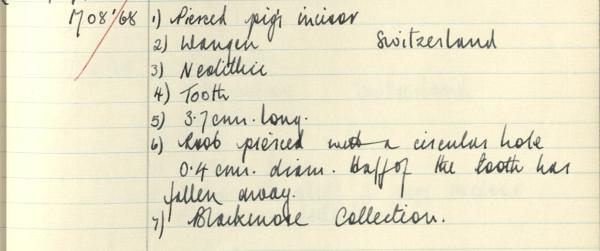 M08'68 1) Pierced pig's incisor
2) Wangen Switzerland
3) Neolithic
4) Tooth
5) 3.7 cm. long.
6) Root pierced with a circular hole
0.4 cm. diam. Half of the tooth has
fallen away.
7) Blackmore Collection.